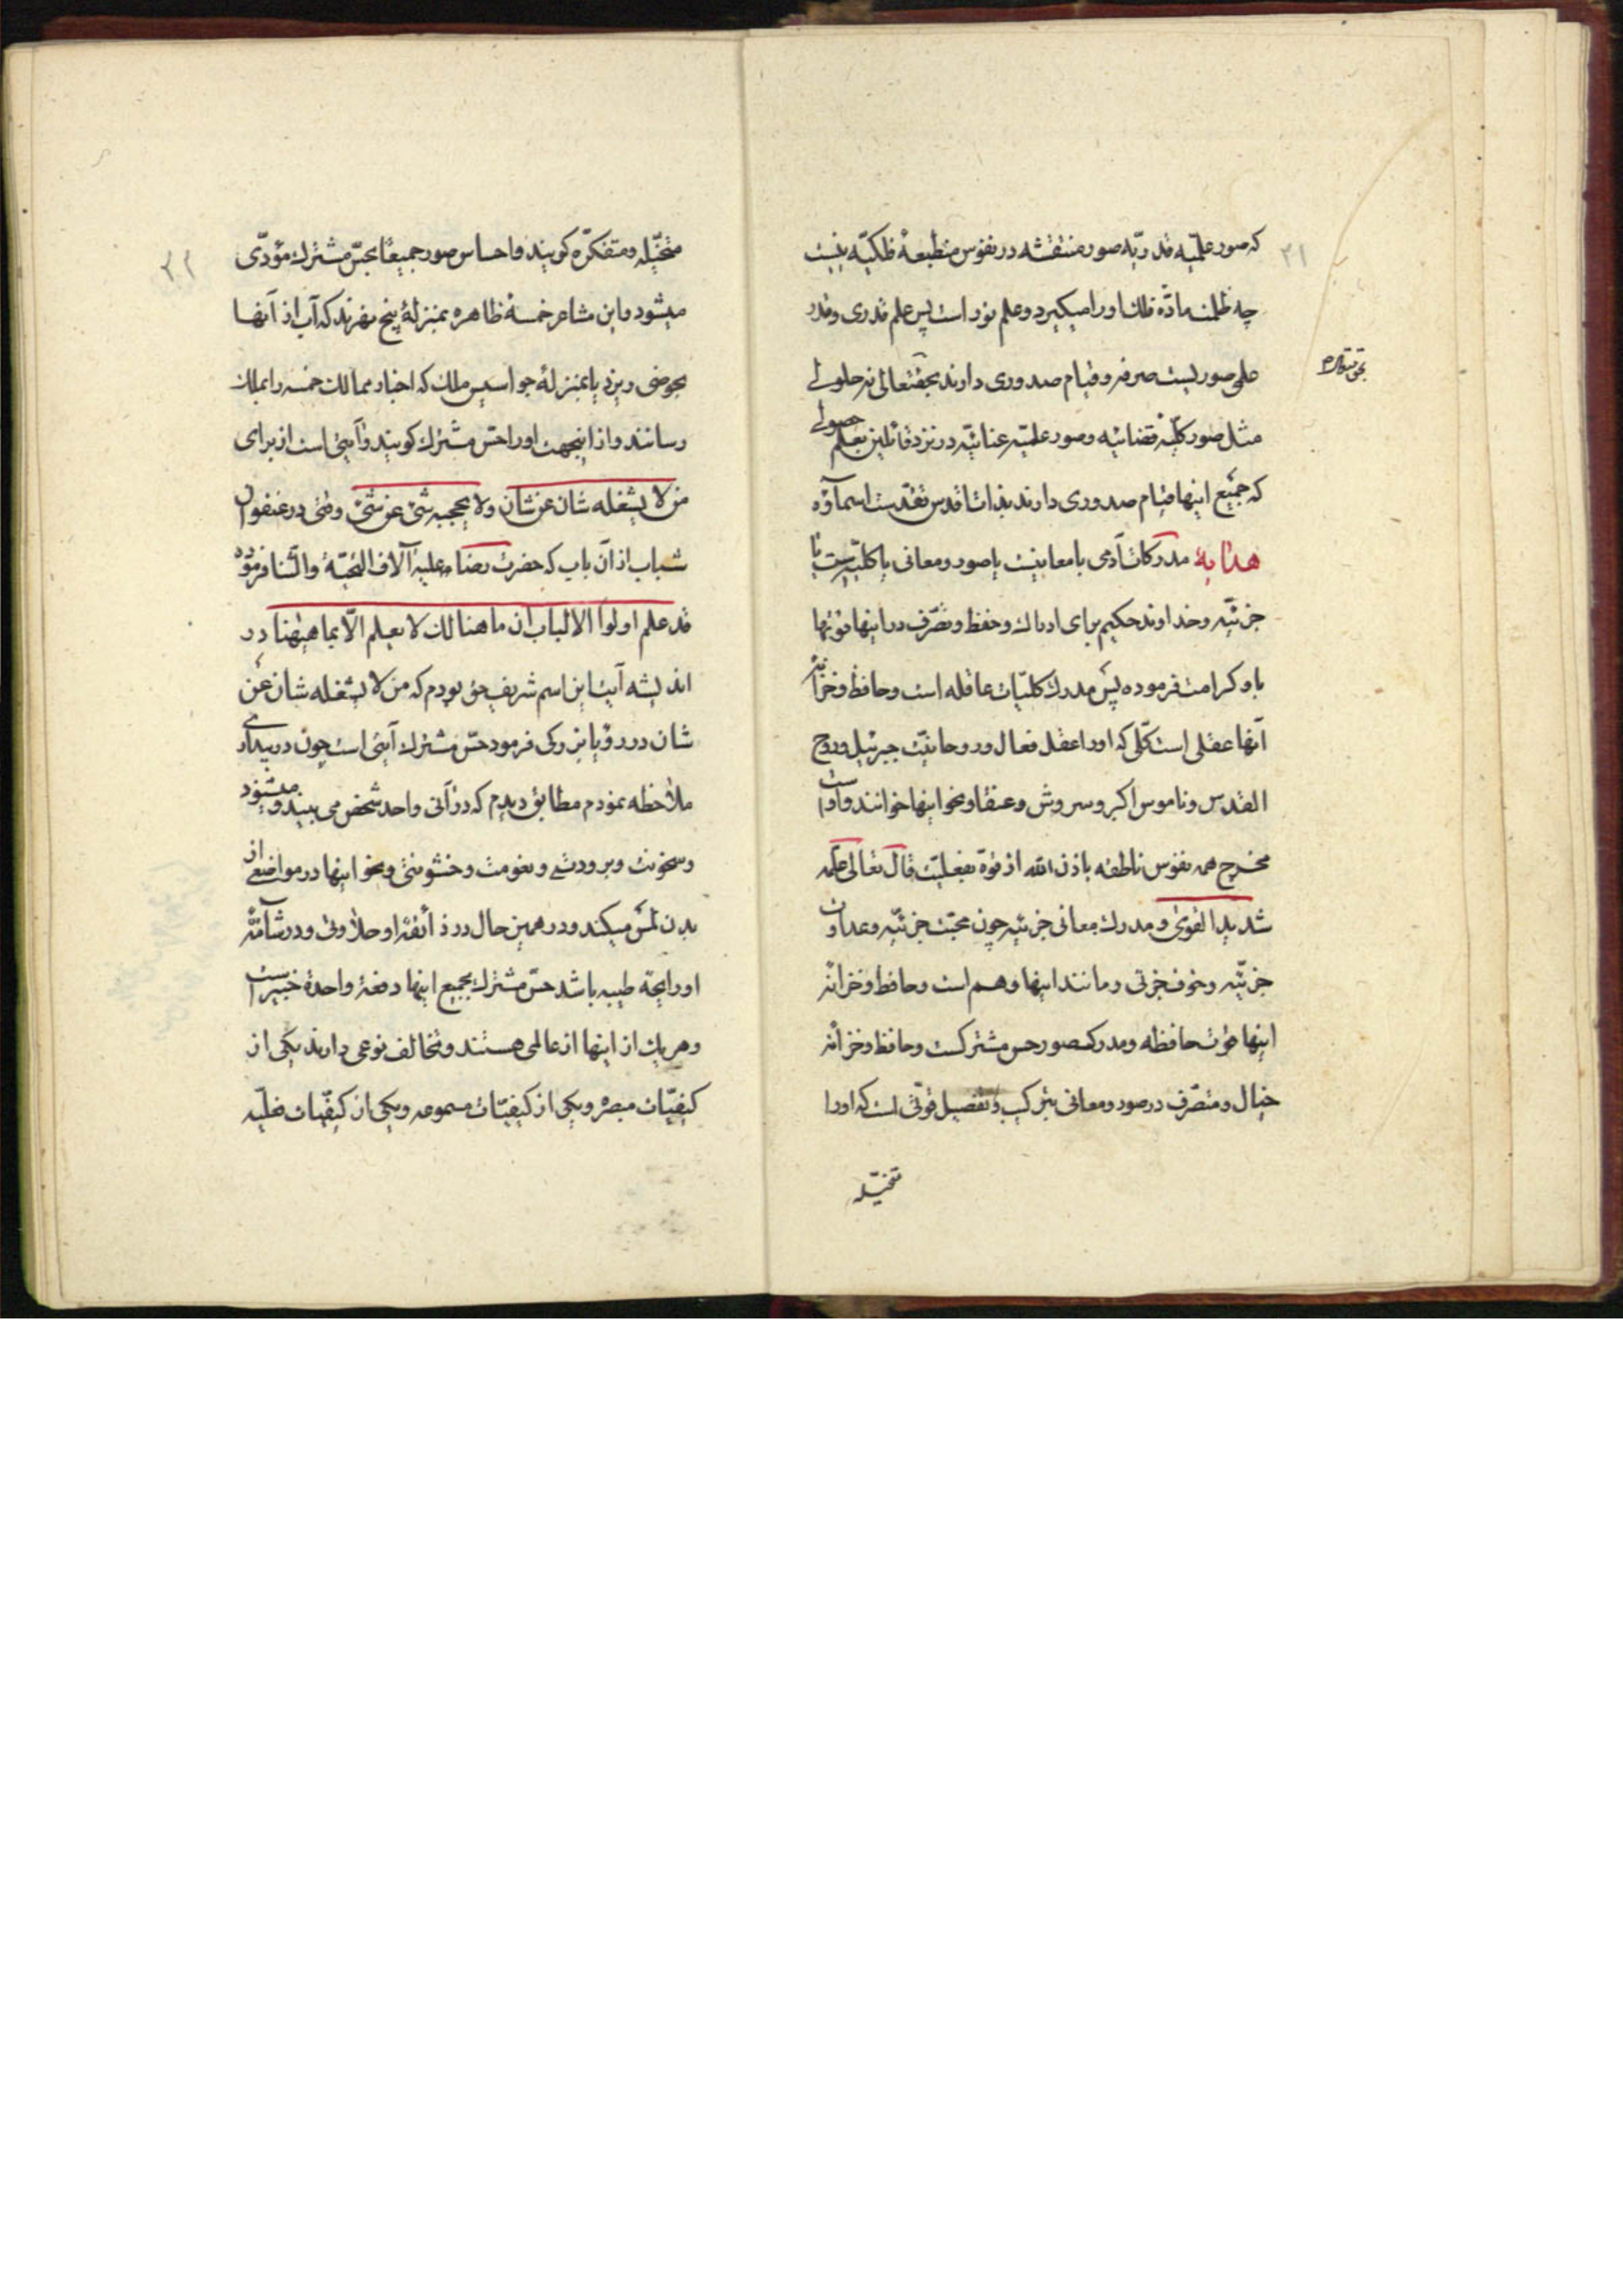 ۲۱
که صور علمیّه قدریّه صور منتقشه در نفوس منطبعهٔ فلکیّه نیست
چه ظلمت مادّهٔ فلک او را میکیرد و علم نور است پس علم قدری و قدر
علمی صوریست صرفه و قیام صدوری دارند بحقتعالی نه حلولی
مثل صور کلیّه قضائیّه و صور علمیّه عنائیّه در نزد قائلین بعلم حصولی
که جمیع اینها قیام صدوری دارند بذات اقدس تقدّست اسمآؤه
هدایهٔ مدرکات آدمی یا معانیست یا صور و معانی یا کلیّه‌ست یا
جزئیّه و خداوند حکیم برای ادراک و حفظ و تصّرف در اینها قوتها
باو کرامت فرموده پس مدرک کلیّات عاقله است و حافظ و خزانهٔ
آنها عقلی است کلّی که او را عقل فعال و روحانیّت جبرئیل و روح
القدس و ناموس اکبر و سروش و عنقا و نحو اینها خوانند و اوست
مخرج همه نفوس ناطقه باذن الله از قوّة بفعلیّت قال تعالی علّمه
شدید القوی و مدرک معانی جزئیّه چون محبّت جزئیّه و عداوت
جزئیّه و خوف جزئی و مانند اینها وهم است و حافظ و خزانهٔ
اینها قوت حافظه و مدرک صور حس مشترکست و حافظ و خزانهٔ
خیال و متصرّف در صور و معانی بترکیب و تفصیل قوّتی است که او را
متخیّله
۲۲
متخیّله و متفکرّه کویند و احساس صور جمیعًا بحسّ مشترک مؤدّی
میشود و این مشاعر خمسهٔ ظاهره بمنزلهٔ پنج نهرند که آب از آنها
بحوضی ریزد یا بمنزلهٔ جواسیس ملک که اخبار ممالک خمسه را بملک
رسانند و از اینجهت او را حسّ مشترک کویند و آیتی است از برای
من لا یشغله شان عن شان و لا یحجبه شیٔ عن شیٔ وقتی در عنفوان
شباب از آن باب که حضرت رضا علیه آلاف التحیّة والثنا فرموده
قد علم اولوا الالباب ان ما هنالک لا یعلم الّا بما هیهنا در
اندیشه آیت این اسم شریف حق بودم که من لا یشغله شان عن
شان در رؤیا بزرکی فرمود حسّ مشترک آیتی است چون در بیداری
ملاحظه نمودم مطابق دیدم که در آنی واحد شخص می بیند و میشنود
و سخونت و برودتی و نعومت و خشونتی و نحو اینها در مواضعی از
بدن لمس میکند و در همین حال در ذائقهٔ او حلاوتی و در شآمّهٔ
او رایحهٔ طیبه باشد حسّ مشترک بجمیع اینها دفعةً واحدةً خبیر است
و هر یک از اینها از عالمی هستند و تخالف نوعی دارند یکی از
کیفیّات مبصره و یکی از کیفیّات مسموعه و یکی از کیفیّات فعلیّه